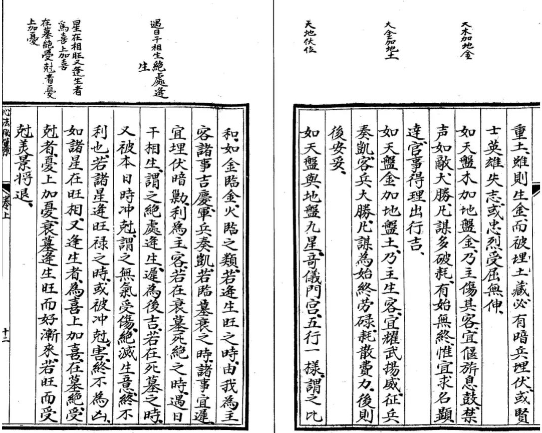 天木加地金
天金加地土
天地伏位
重土雖則生金而被埋土藏必有暗兵埋伏或賢
士英雄失志或忠烈受屈無伸
如天盤木加地盤金乃主傷其客宜偃旂息鼓禁
声如敵大勝凡謀多破耗有始無終惟宜求名顯
達官事得理出行吉
如天盤金加地盤土乃主生客宜耀武揚威征兵
奏凱客兵大勝凡謀為始終勞碌耗散費力後則
後安妥
如天盤與地盤九星奇儀門宮五行一樣謂之比
遇日干相生絕處逢
生
星在相旺又逢生者
為喜上加喜
在墓絕受尅者憂
上加憂
和如金臨金火臨火之類若逢生旺之時由我為主
客諸事吉慶軍兵奏凱若臨墓衰之時諸事宜遲
宜埋伏暗勦利為主客若在衰墓死絕之時遇日
干相生謂之絕處逢生遲為後吉若在死墓之時
又被本日時冲尅謂之無氣受傷絕滅生意終不
利也若諸星逢旺祿之時或被冲尅害終不為凶
如諸星在旺相又逢生者為喜上加喜在墓絕受
尅者憂上加憂衰墓逢生旺而好漸來若旺而受
尅美景將退
卷上
十二